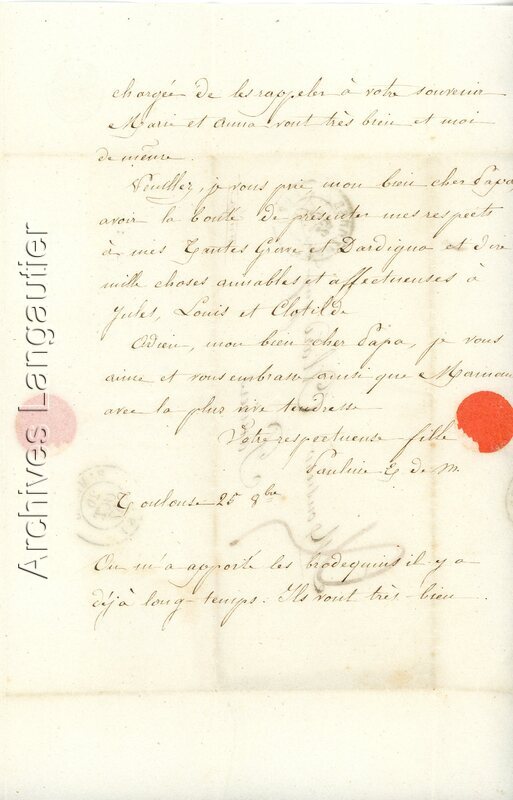 chargée de les rappeler à votre souvenir
Marie et Anna vont très bien et moi
de même.
Veuillez, je vous prie, mon bien cher Papa
avoir la bonté de présenter mes respects
à mes Tantes Grave et Dardignac et dire
mille choses aimables et affectueuses à
Jules, Louis et Clotilde
Adieu, mon bien cher Papa, je vous
aime et vous embrasse ainsi que Maman
avec la plus vive tendresse
Votre respectueuse fille
Pauline de M.
Toulouse 25 8bre
On m'a apporté les brodequins il y a
déjà long-temps. Ils vont très-bien.
Archives Langautier